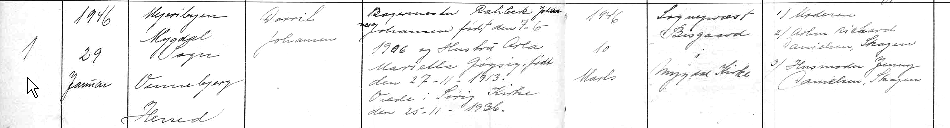 1
1946
29
Januar
Mejeribyen
Mygdal
Sogn
Vennebjerg
Herred
Dorrit
Johansen
Bagermester Rahbek Johan-
født den 7-6
1906 og Hustru Asta
Marietta født
den 27-11-1913.
Viede i Kirke
den 25-11-1936.
1946
10
Marts
Sognepræst
Bisgaard
i
Mygdal Kirke
1/ Moderen
2/
Danielsen, Skagen
3/ Husmoder Jenny
Danielsen, Skagen